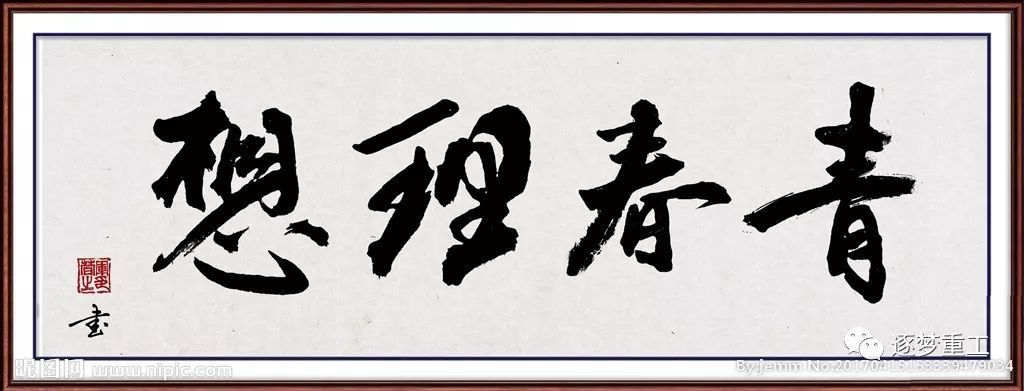 青春理想
书
逐梦重工
昵图网 www.nipic.com
By:jemm No:20170415153339479034